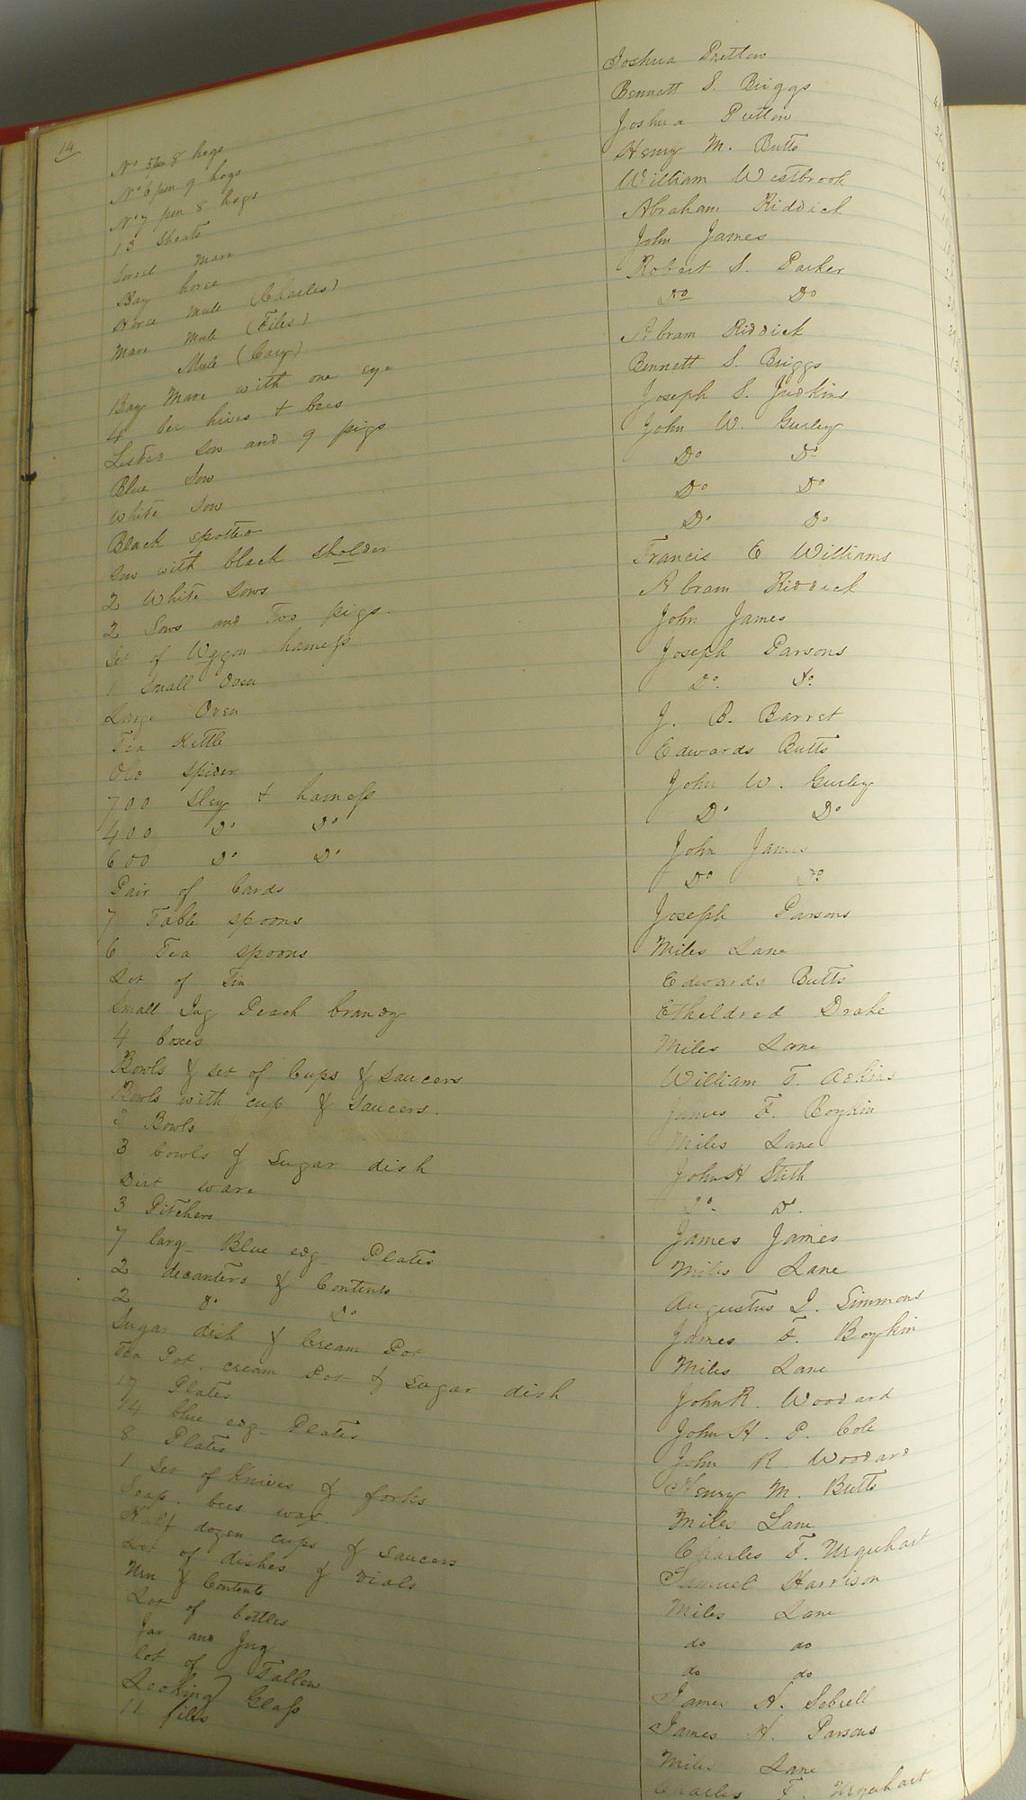 14
No 5 pen 8 hogs Joshua Pretlow
No 6 pen 9 hogs Bennett S. Briggs
No 7 pen 8 hogs Joshua Pretlow
13 Shoats Henry M. Butts
Sorrel Mare William Westbrook
Bay horse Abraham Riddick
Horse Mule (Charles) John James
Mare Mule (Files) Robert S. Parker
Mule (Cary) Do Do
Bay Mare with one eye Abram Riddick
4 bee hives + bees Bennett S. Briggs
Listed Sow and 9 pigs Joseph S. Judkins
Blue Sow John W. Gurley
White Sow Do Do
Black spotted Do Do
Sow with black sholder Do Do
2 White Sows Francis E Williams
2 Sows and Two pigs. Abram Riddick
Set of Waggon harness John James
1 small Oven Joseph Parsons
Large Oven Do. Do
Tea Kettle J. B. Barret
Old spider Edwards Butts
700 Sley + harness John W. Gurley
400 Do Do Do Do
600 Do Do John James
Pair of Cards Do Do
7 Table spoons Joseph Parsons
6 Tea spoons Miles Lane
Lot of Tin Edwards Butts
Small Jug Peach brandy Etheldred Drake
4 boxes Miles Lane
Bowls & set of Cups & saucers William T. Adkins
Bowls with cup & Saucers. James F. Boykin
2 Bowls Miles Lane
3 bowls & sugar dish John H Stith
Dirt ware Do. Do.
3 Pitchers James James
7 larg Blue edg Plates Miles Lane
2 decanters & Contents Augustus I. Simmons
2 do Do James F. Boykin
Sugar dish & Cream Pot Miles Lane
Tea Pot. cream Pot & sugar dish John R. Woodard
17 Plates John H. P. Cole
14 blue edg Plates John R. Woodard
8 Plates Henry M. Butts
1 Set of Knives & forks Miles Lane
Soap. bees wax Charles F. Urquhart
Half dozen cups & saucers Samuel Harrison
Lot of dishes & vials Miles Lane
Urn & Contents do do
Lot of bottles do do
Jar and Jug James H. Sebrell
lot of Tallow James H. Parsons
Looking Glass Miles Lane
11 files Charles F. Urquhart